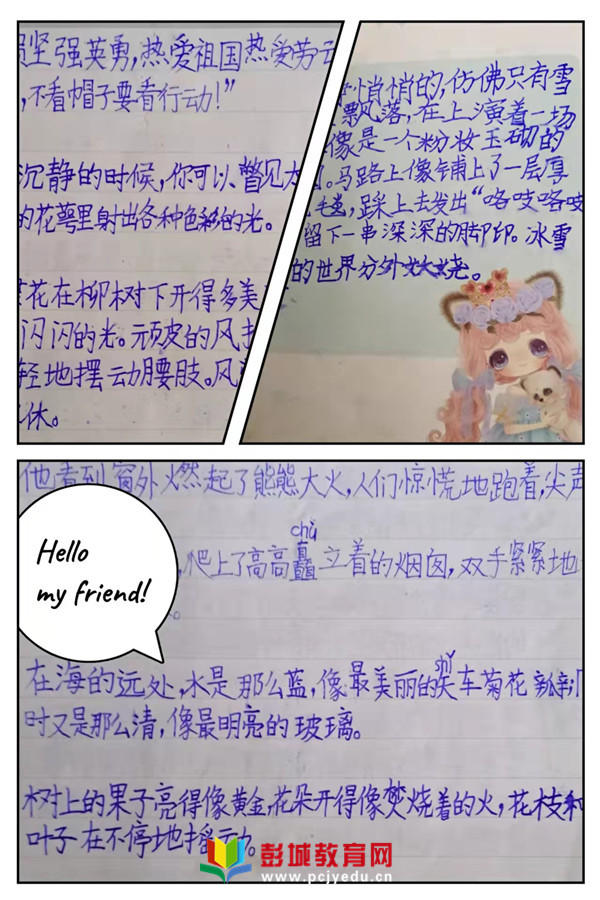 坚强英勇,热爱祖国热爱劳动
,不看帽子要看行动!"
沉静的时候,你可以瞥见大
的花萼里射出各种色彩的光。
花在柳树下开得多美
闪闪的光。顽皮的风
轻地摆动腰肢。风
休。
悄悄的,仿佛只有雪
飘落,在上演着一场
像是一个粉妆玉砌的
。马路上像铺上了一层厚
毯,踩上去发出“咯吱咯吱
留下一串深深的脚印。冰雪
的世界分外妖娆。
他看到窗外燃起了熊熊大火,人们惊慌地跑着,尖声
Hello
my friend!
chù
爬上了高高矗立着的烟囱,双手紧紧地
。
shǐ
在海的远处,水是那么蓝,像最美丽的矢车菊花瓣
时又是那么清,像最明亮的玻璃。
树上的果子亮得像黄金,花朵开得像焚烧着的火,花枝和
叶子在不停地摇动。
彭城教育网
www.pcjyedu.cn